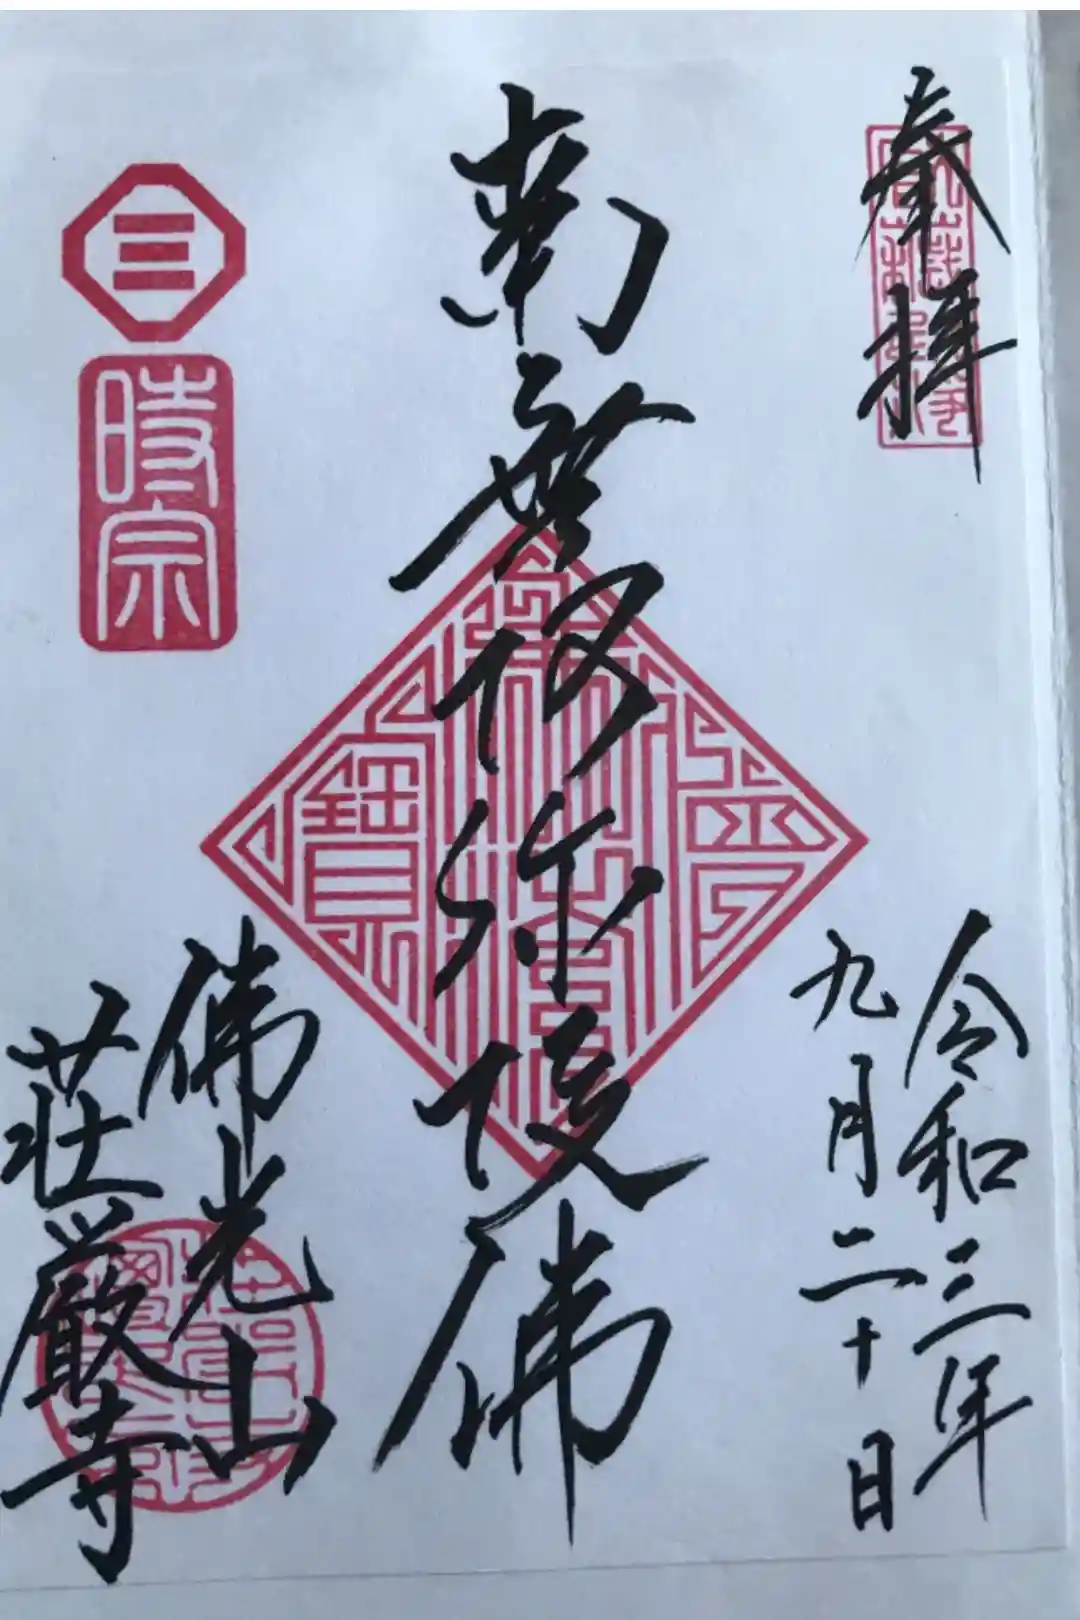 奉拝
令和三年
九月二十日
南無阿弥陀佛
時宗
佛光山
荘厳寺